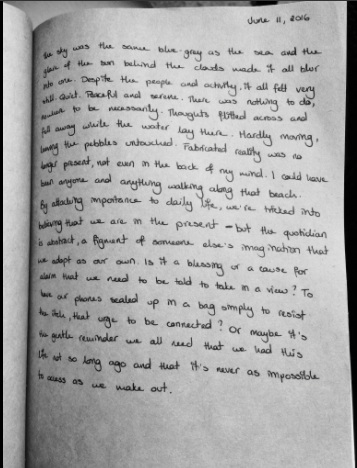 June 11, 2016
the sky was the same blue-grey as the sea and the
glare of the sun behind the clouds made it all blur
into one. Despite the people and activity, it all felt very
still. Quiet. Peaceful and serene. There was nothing to do,
nowhere to be necessarily. Thoughts flitted across and
fell away while the water lay there. Hardly moving,
leaving the pebbles untouched. Fabricated reality was no
longer present, not even in the back of my mind. I could have
been anyone and anything walking along that beach.
By attaching importance to daily life, we're tricked into
believing that we are in the present - but the quotidian
is abstract, a figment of someone else's imagination that
we adopt as our own. Is it a blessing or a cause for
alarm that we need to be told to take in a view? To
have our phones sealed up in a bag simply to resist
the itch, that urge to be connected? Or maybe it's
the gentle reminder we all need that we had this
life not so long ago and that it's never as impossible
to access as we make out.